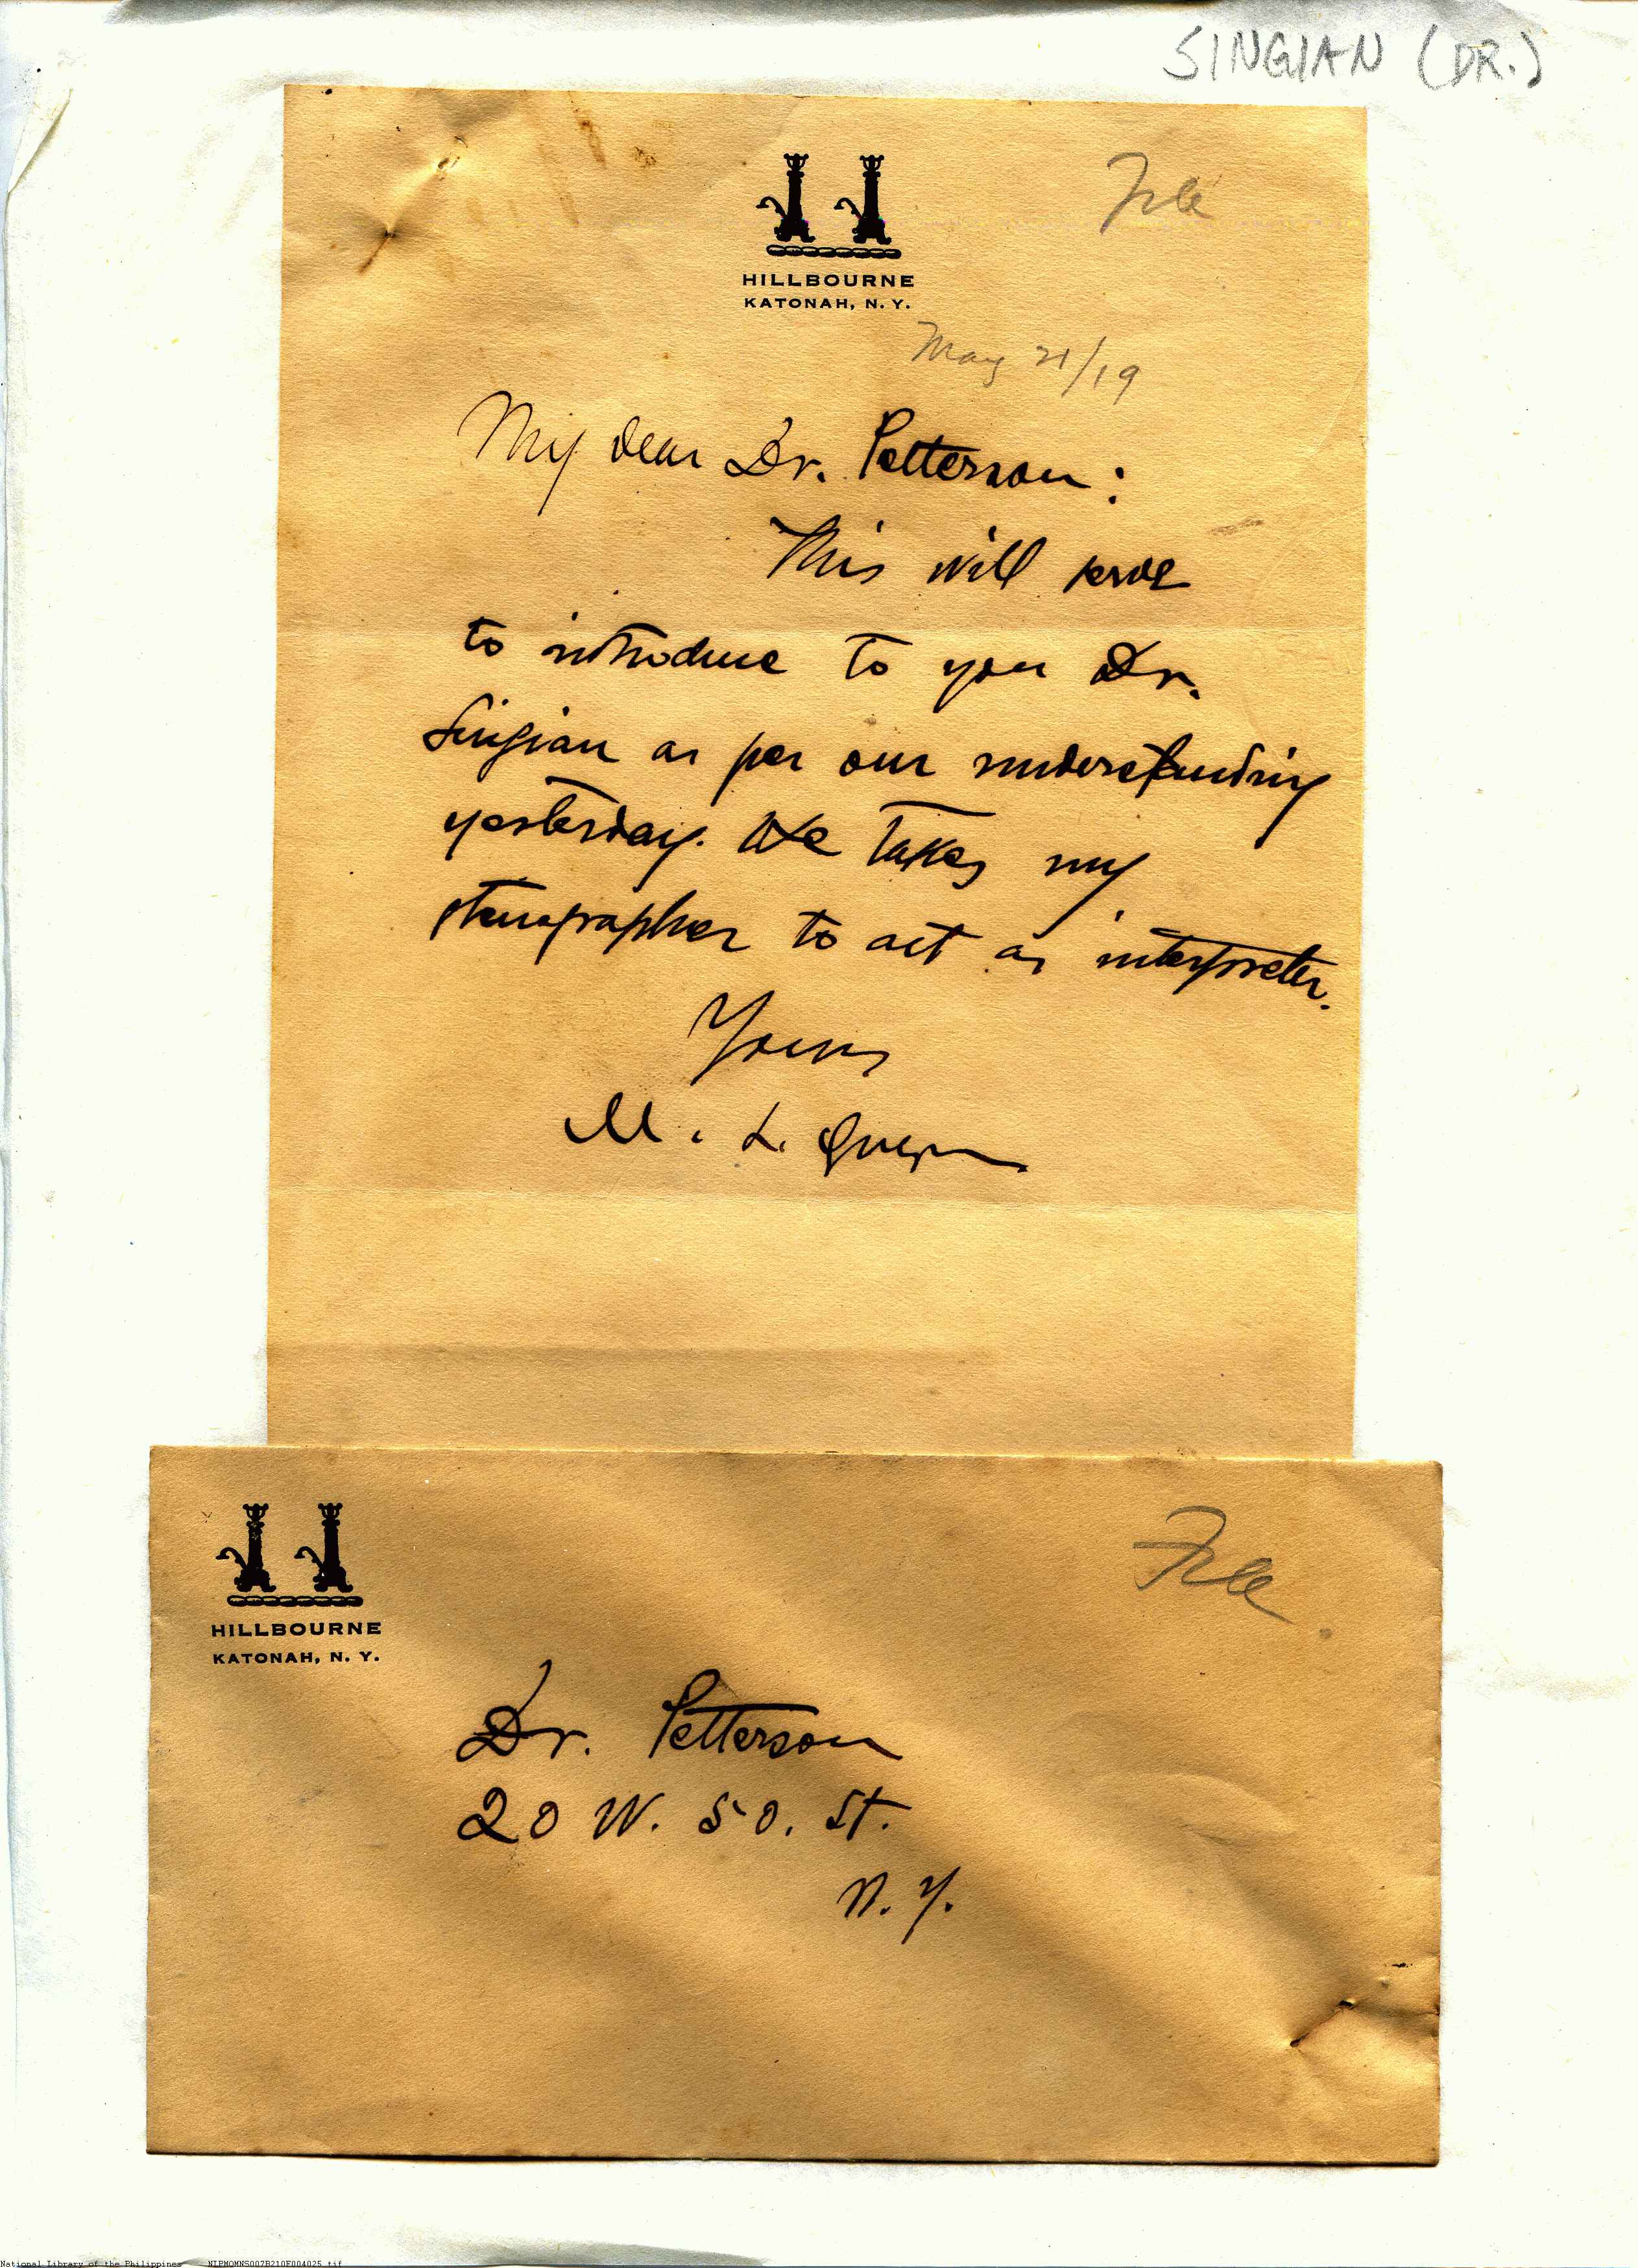 SINGIAN (DR.)
File
HILLBOURNE
KATONAH, N. Y.
May 21/19
My dear Dr. Petterson:
This will serve
to introduce to you Dr.
Singian as per our understanding
yesterday. He takes my
stenographer to act as interpreter.
Yours
M. L. Quezon
File
HILLBOURNE
KATONAH, N. Y.
Dr. Petterson
20 W. 50. St.
N. Y.
National Library of the Philippines NLPMQMNS007B210F004025.tif